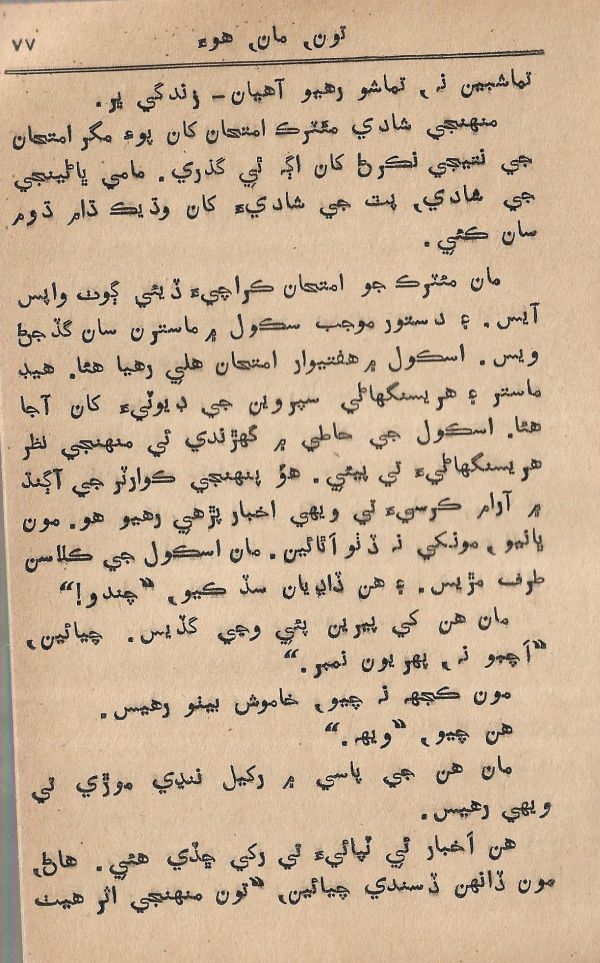 تون, مان, هوءَ ٧٧
تماشبين نہ, تماشو رهيو آهيان – زندگي ڀر.
منهنجي شادي مئٽرڪ امتحان کان پوءِ مگر امتحان
جي نتيجي نڪرڻ کان اڳہ ئي گذري. مامي ڀاڻيجي
جي شادي, پٽ جي شاديءَ کان وڌيڪ ڌام ڌوم
سان ڪئي.
مان مئٽرڪ جو امتحان ڪراچيءَ ڏيئي ڳوٺ واپس
آيس. ۽ دستور موجب سڪول ۾ ماسترن سان گڏجڻ
ويس. اسڪول ۾ هفتيوار امتحان هلي رهيا هئا. هيڊ
ماستر ۽ هريسنگهاڻي سپروين جي ڊيوٽيءَ کان آجا
هئا. اسڪول جي حاطي ۾ گهڙندي ئي منهنجي نظر
هريسنگهاڻيءَ تي پيئي. هوُ پنهنجي ڪوارٽر جي آڳنڌ
۾ آرام ڪرسيءَ تي ويهي اخبار پڙهي رهيو هو. مون
ڀانيو, مونکي نہ ڏٺو اَٿائين. مان اسڪول جي ڪلاسن
طرف مڙيس. ۽ هن ڏاڍيان سڏ ڪيو, “چندو!“
مان هن کي پيرين پئي وڃي گڏيس. چيائين,
“اَچبو نہ, پهريون نمبر.“
مون ڪجهہ نہ چيو, خاموش بيٺو رهيس.
هن چيو, “ويهہ.“
مان هن جي پاسي ۾ رکيل ننڍي موڙي تي
ويهي رهيس.
هن اَخبار ٽي ٽپائيءَ تي رکي ڇڏي هئي. هاڻ,
مون ڏانهن ڏسندي چيائين, “تون منهنجي اثر هيٺ